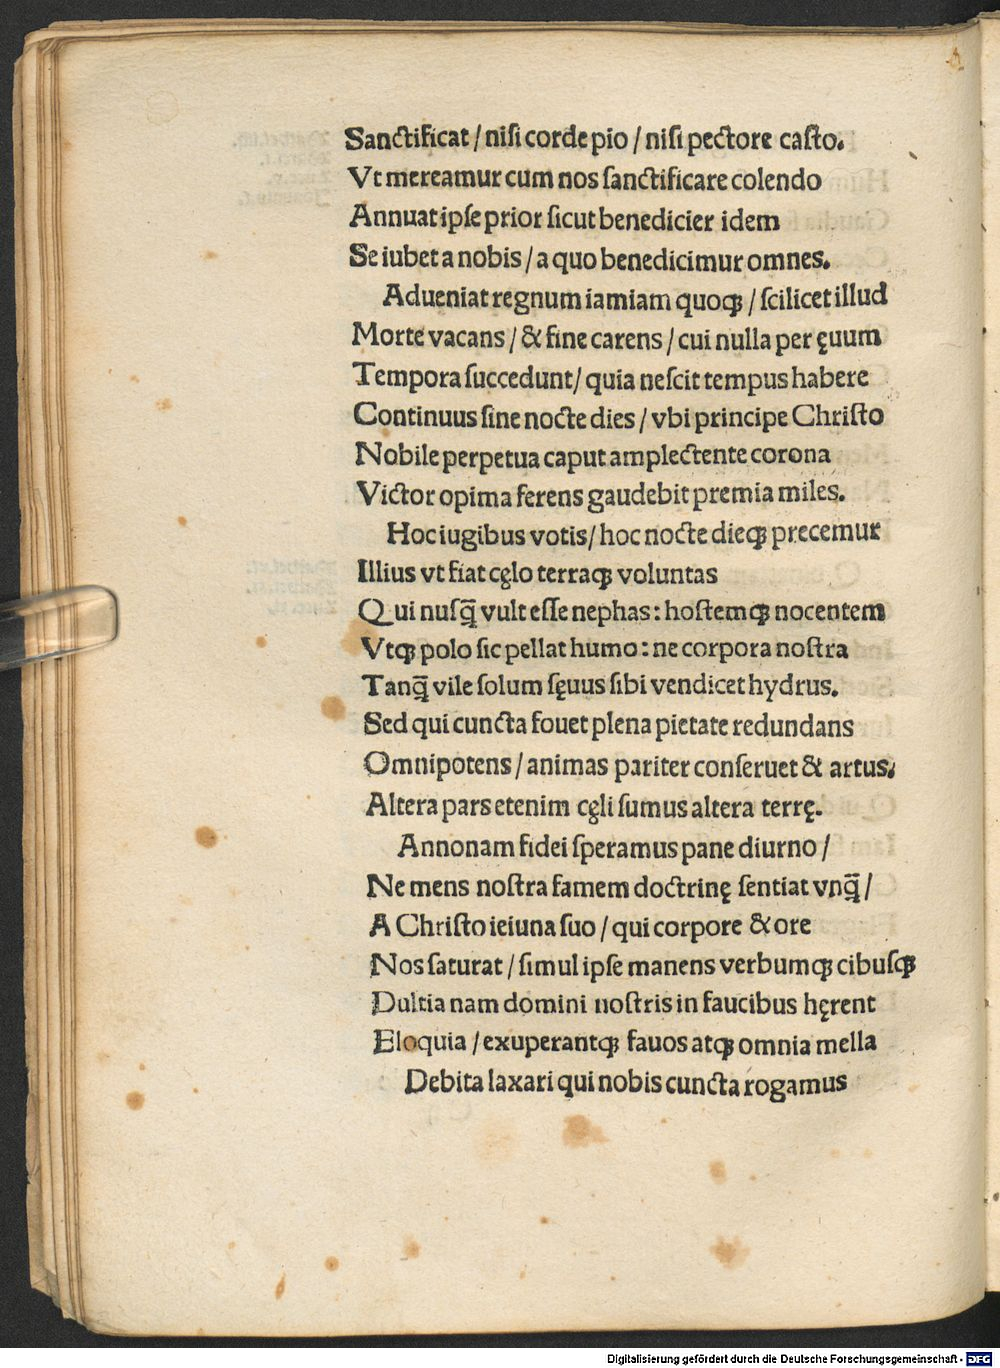 Sanctificat / niſi corde pio / niſi pectore caſto.
Vt mereamur cum nos ſanctificare colendo
Annuat ipſe prior ſicut benedicier idem
Se iubet a nobis / a quo benedicimur omnes.
Adueniat regnum iamiam quoqꝫ / ſcilicet illud
Morte vacans / & fine carens / cui nulla per ęuum
Tempora ſuccedunt / quia neſcit tempus habere
Continuus ſine nocte dies / vbi principe Chriſto
Nobile perpetua caput amplectente corona
Victor opima ferens gaudebit premia miles.
Hoc iugibus votis / hoc nocte dieqꝫ precemur
Illius vt fiat cęlo terraqꝫ voluntas
Qui nuſq̄ vult eſſe nephas : hoſtemqꝫ nocentem
Vtqꝫ polo ſic pellat humo : ne corpora noſtra
Tanq̄ vile ſolum ſęuus ſibi vendicet hydrus.
Sed qui cuncta fouet plena pietate redundans
Omnipotens / animas pariter conſeruet & artus.
Altera pars etenim cęli ſumus altera terrę.
Annonam fidei ſperamus pane diurno /
Ne mens noſtra famem doctrinę ſentiat vnq̄ /
A Chriſto ieiuna ſuo / qui corpore & ore
Nos ſaturat / ſimul ipſe manens verbumqꝫ cibuſqꝫ
Dultia nam domini noſtris in faucibus hęrent
Eloquia / exuperantqꝫ fauos atqꝫ omnia mella
Debita laxari qui nobis cuncta rogamus
Digitalisierung gefördert durch die Deutsche Forschungsgemeinschaft - DFG